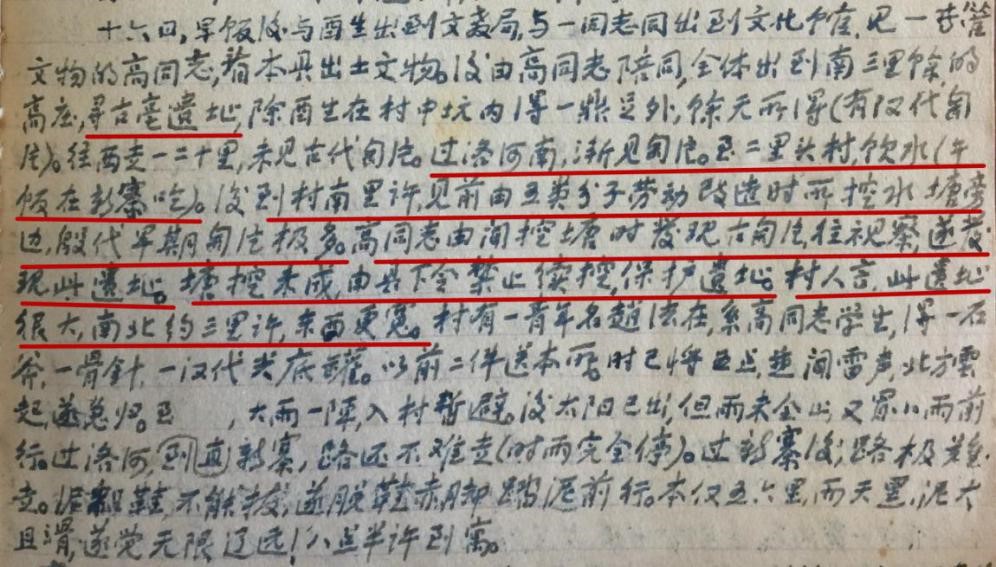 十六日,早饭后与酉生出到文教局,与一同志同出到文化馆,见一专管
文物的高同志,看本县出土文物。后由高同志陪同,全体出到南三里馀的
高庄,寻古亳遗址,除酉生在村中坑内得一鼎足外,馀无所得(有汉代匋
片)。往西走一二十里,未见古代匋片。过洛河南,渐见匋片。至二里头村,饮水(午
饭在新寨吃)。後到村南里许,见前由五类分子劳动改造时所挖水塘旁
边,殷代早期匋片极多。高同志由闻挖塘时发现古匋片,往视察,遂发
现此遗址。塘挖未成,由县下令禁止续挖,保护遗址。村人言,此遗址
很大,南北约三里许,东西更宽。村有一青年名趙法在,系高同志学生,得一石
斧,一骨針,一汉代尖底罐。以前二件送本所。时已将五点,连闻雷声,北方雲
起,遂急归。至 ,大雨一陣,入村暂避。後太阳已出,但雨未全止,又冒小雨前
行。过洛河,到新寨,路还不难走(时雨完全停)。过新寨後,路极难
走。泥粘鞋,不能拔,遂脱鞋赤脚踏泥前行。本仅五六里,而天黑,泥大
且滑,遂觉无限辽远!八点半许到寓。